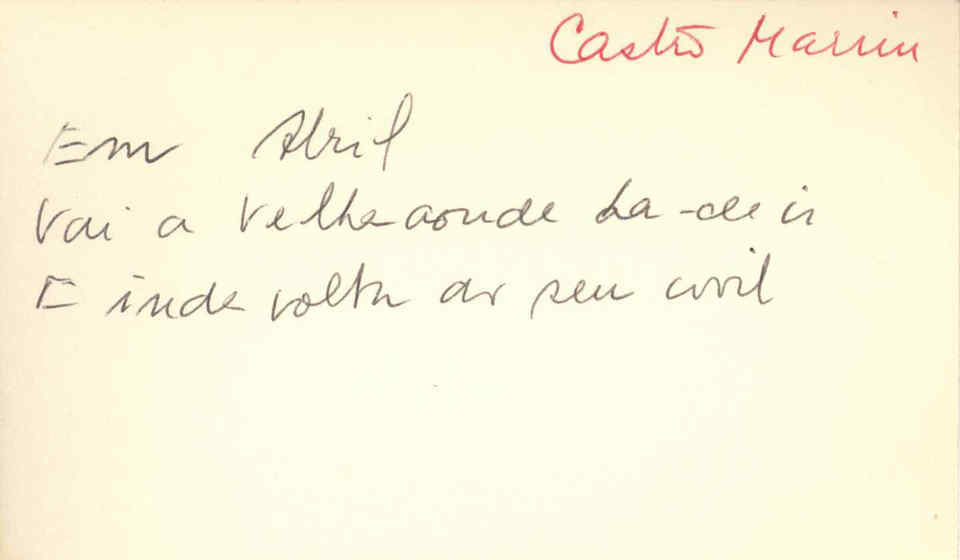 Castro Marim
Em Abril
Vai a velha aonde há-de ir
E inda volta ao seu covil